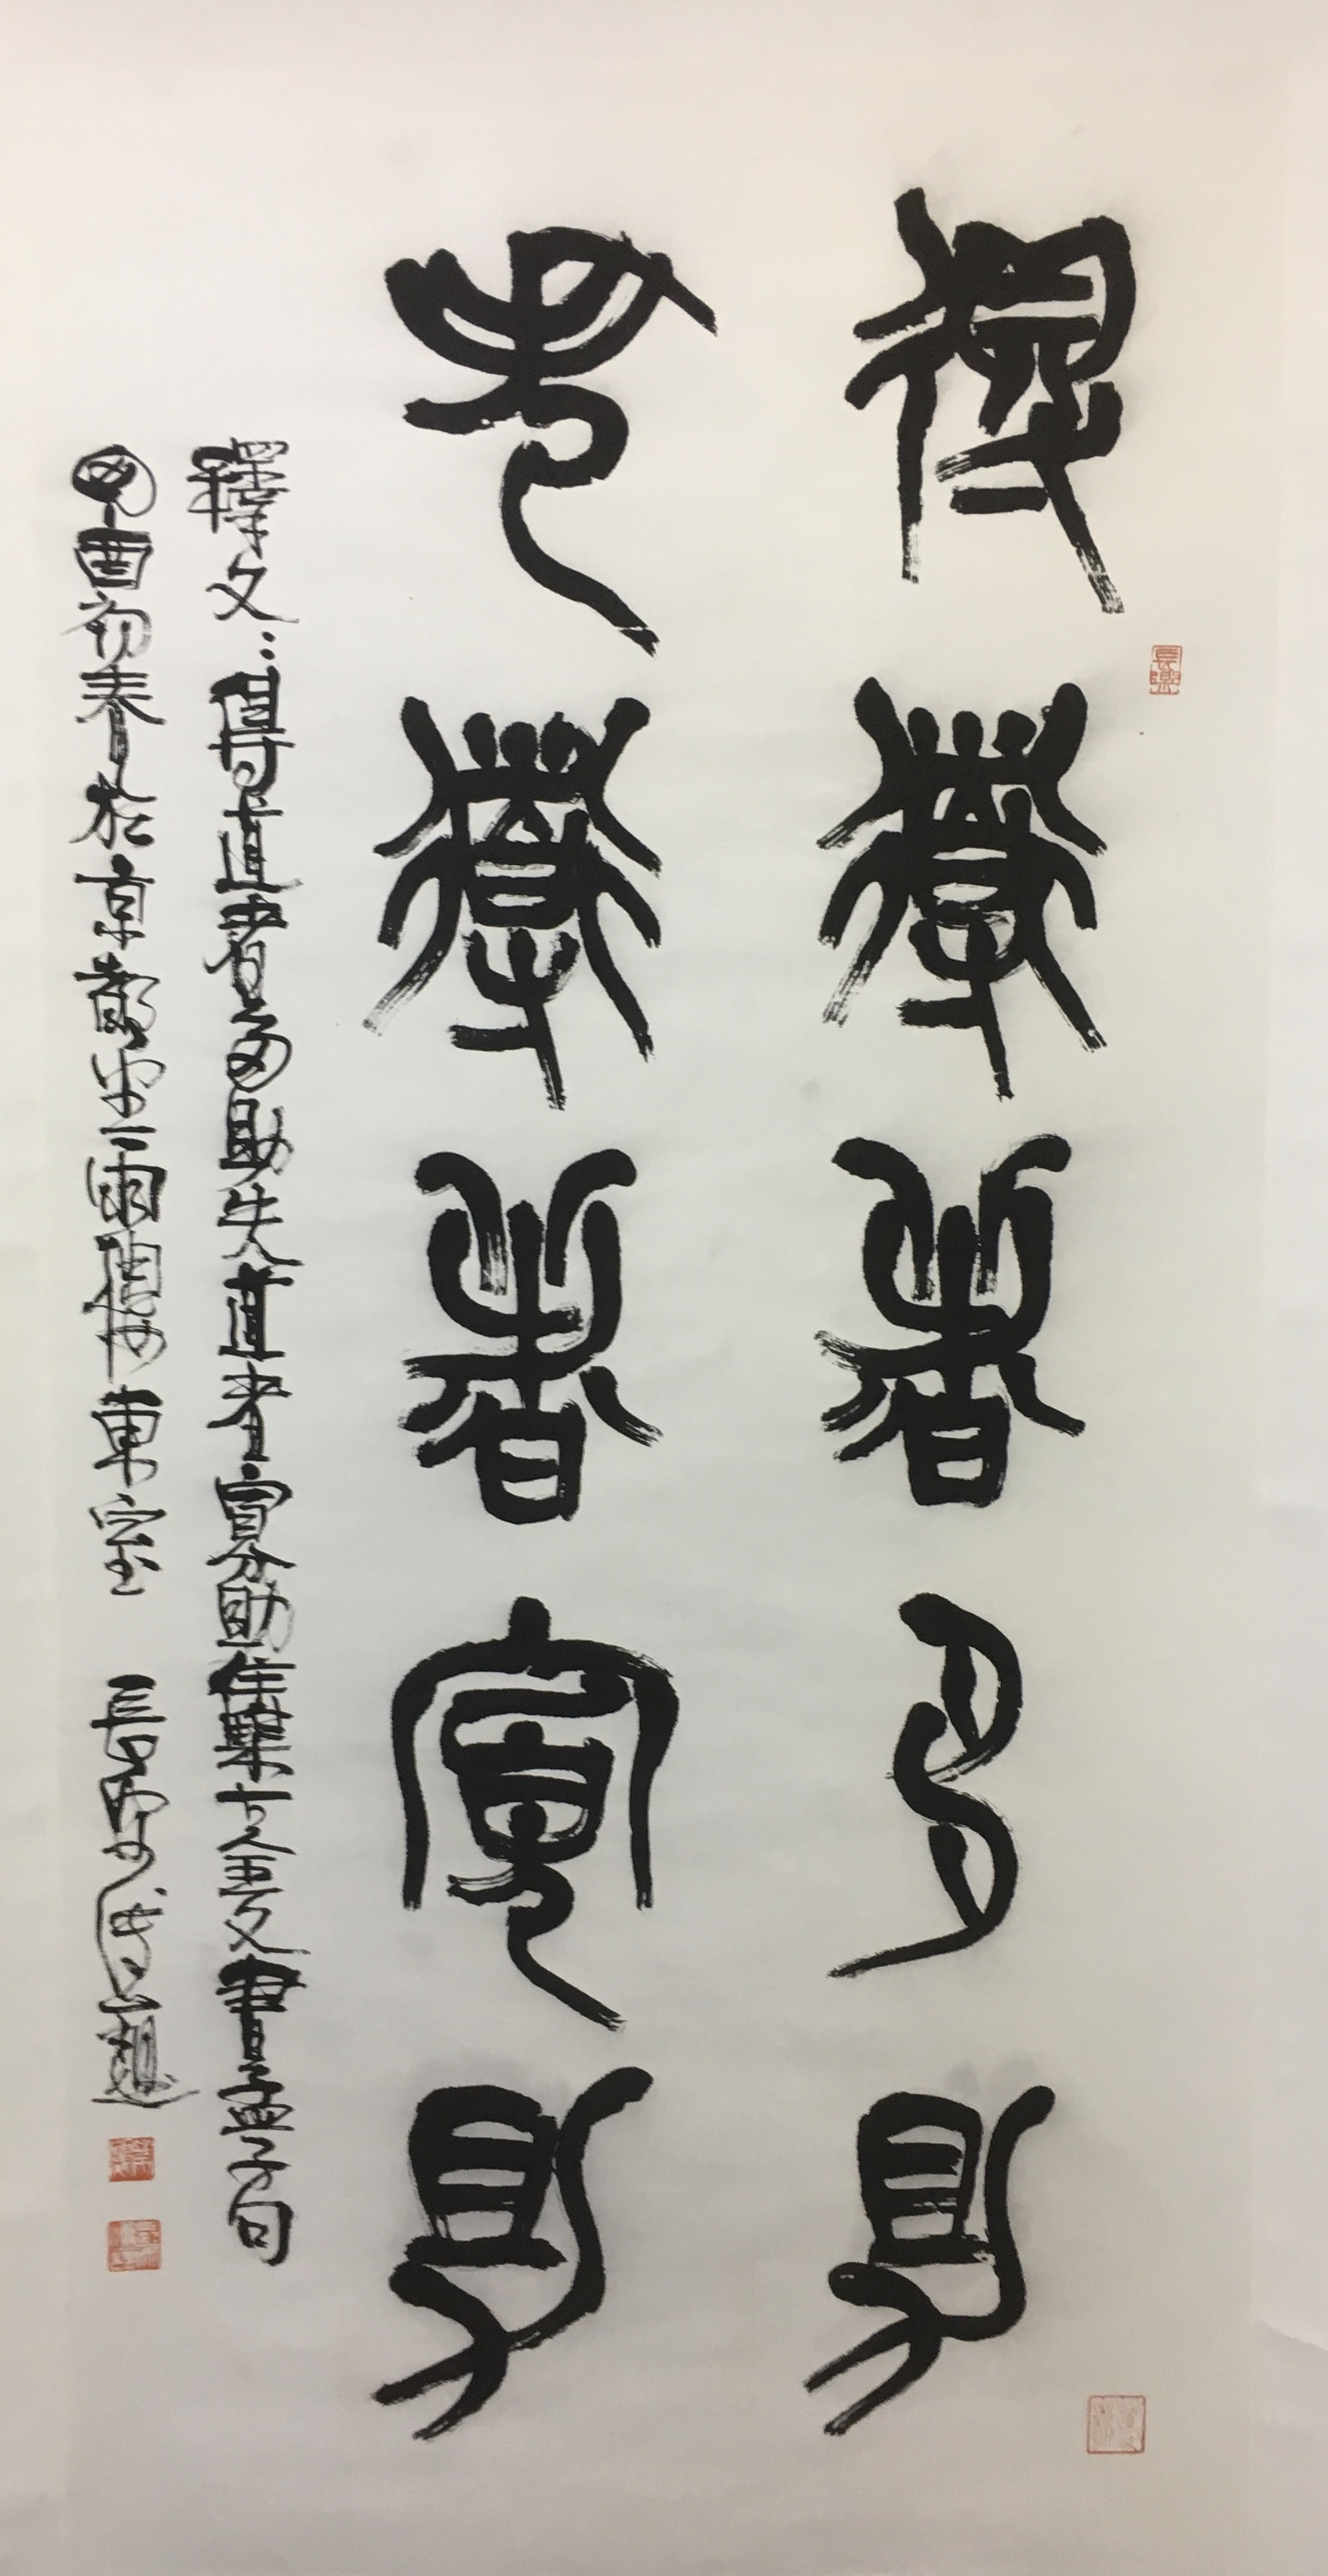 得道者多助
失道者寡助
釋文：得道者多助失道者寡助集古金文書孟子句
丁酉初春於京華雨樓東室 長
長樂